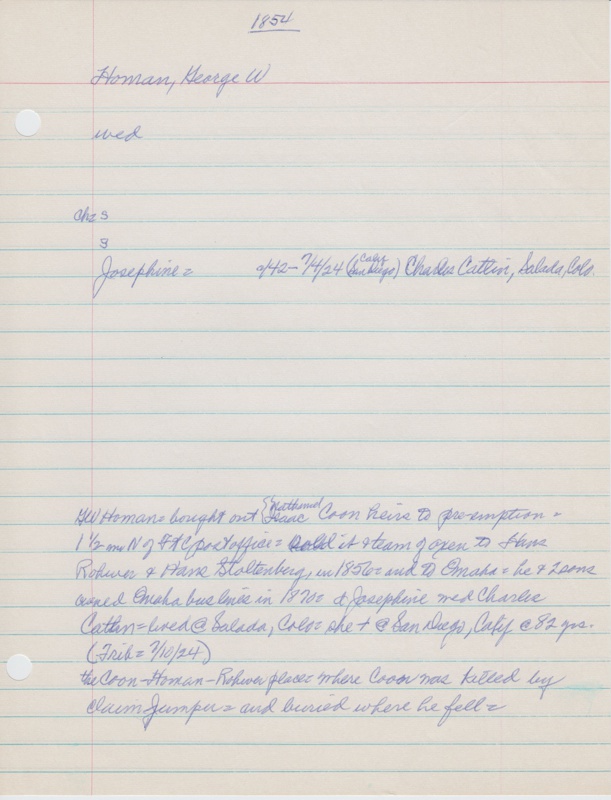 1854
Homan, George W
wed
chr s
s
Josephine = 1842 - 7/4/24 (Calif San Diego) Charles Catlin, Salada, Colo.
GW Homan = bought out {Nathaniel Isaac Coon heirs to pre-emption =
1 1/2 m N of Ft C post office = sold it & team of oxen to Hans
Rohwer & Hans Stoltenberg, in 1856 = and to Omaha = he & 2 sons
owned Omaha bus lines in 1870s & Josephine wed Charles
Catlin = lived @ Salada, Colo = she + @ San Diego, Calif @ 82 yrs.
(Trib = 7/10/24)
the Coon - Homan - Rohwer place = where Coon was killed by
claim jumper = and buried where he fell =